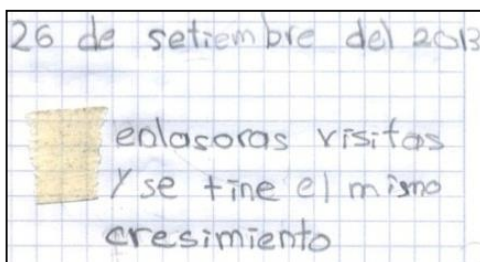 26 de setiembre del 2013
enlasoras visitas
y se tine el mismo
cresimiento